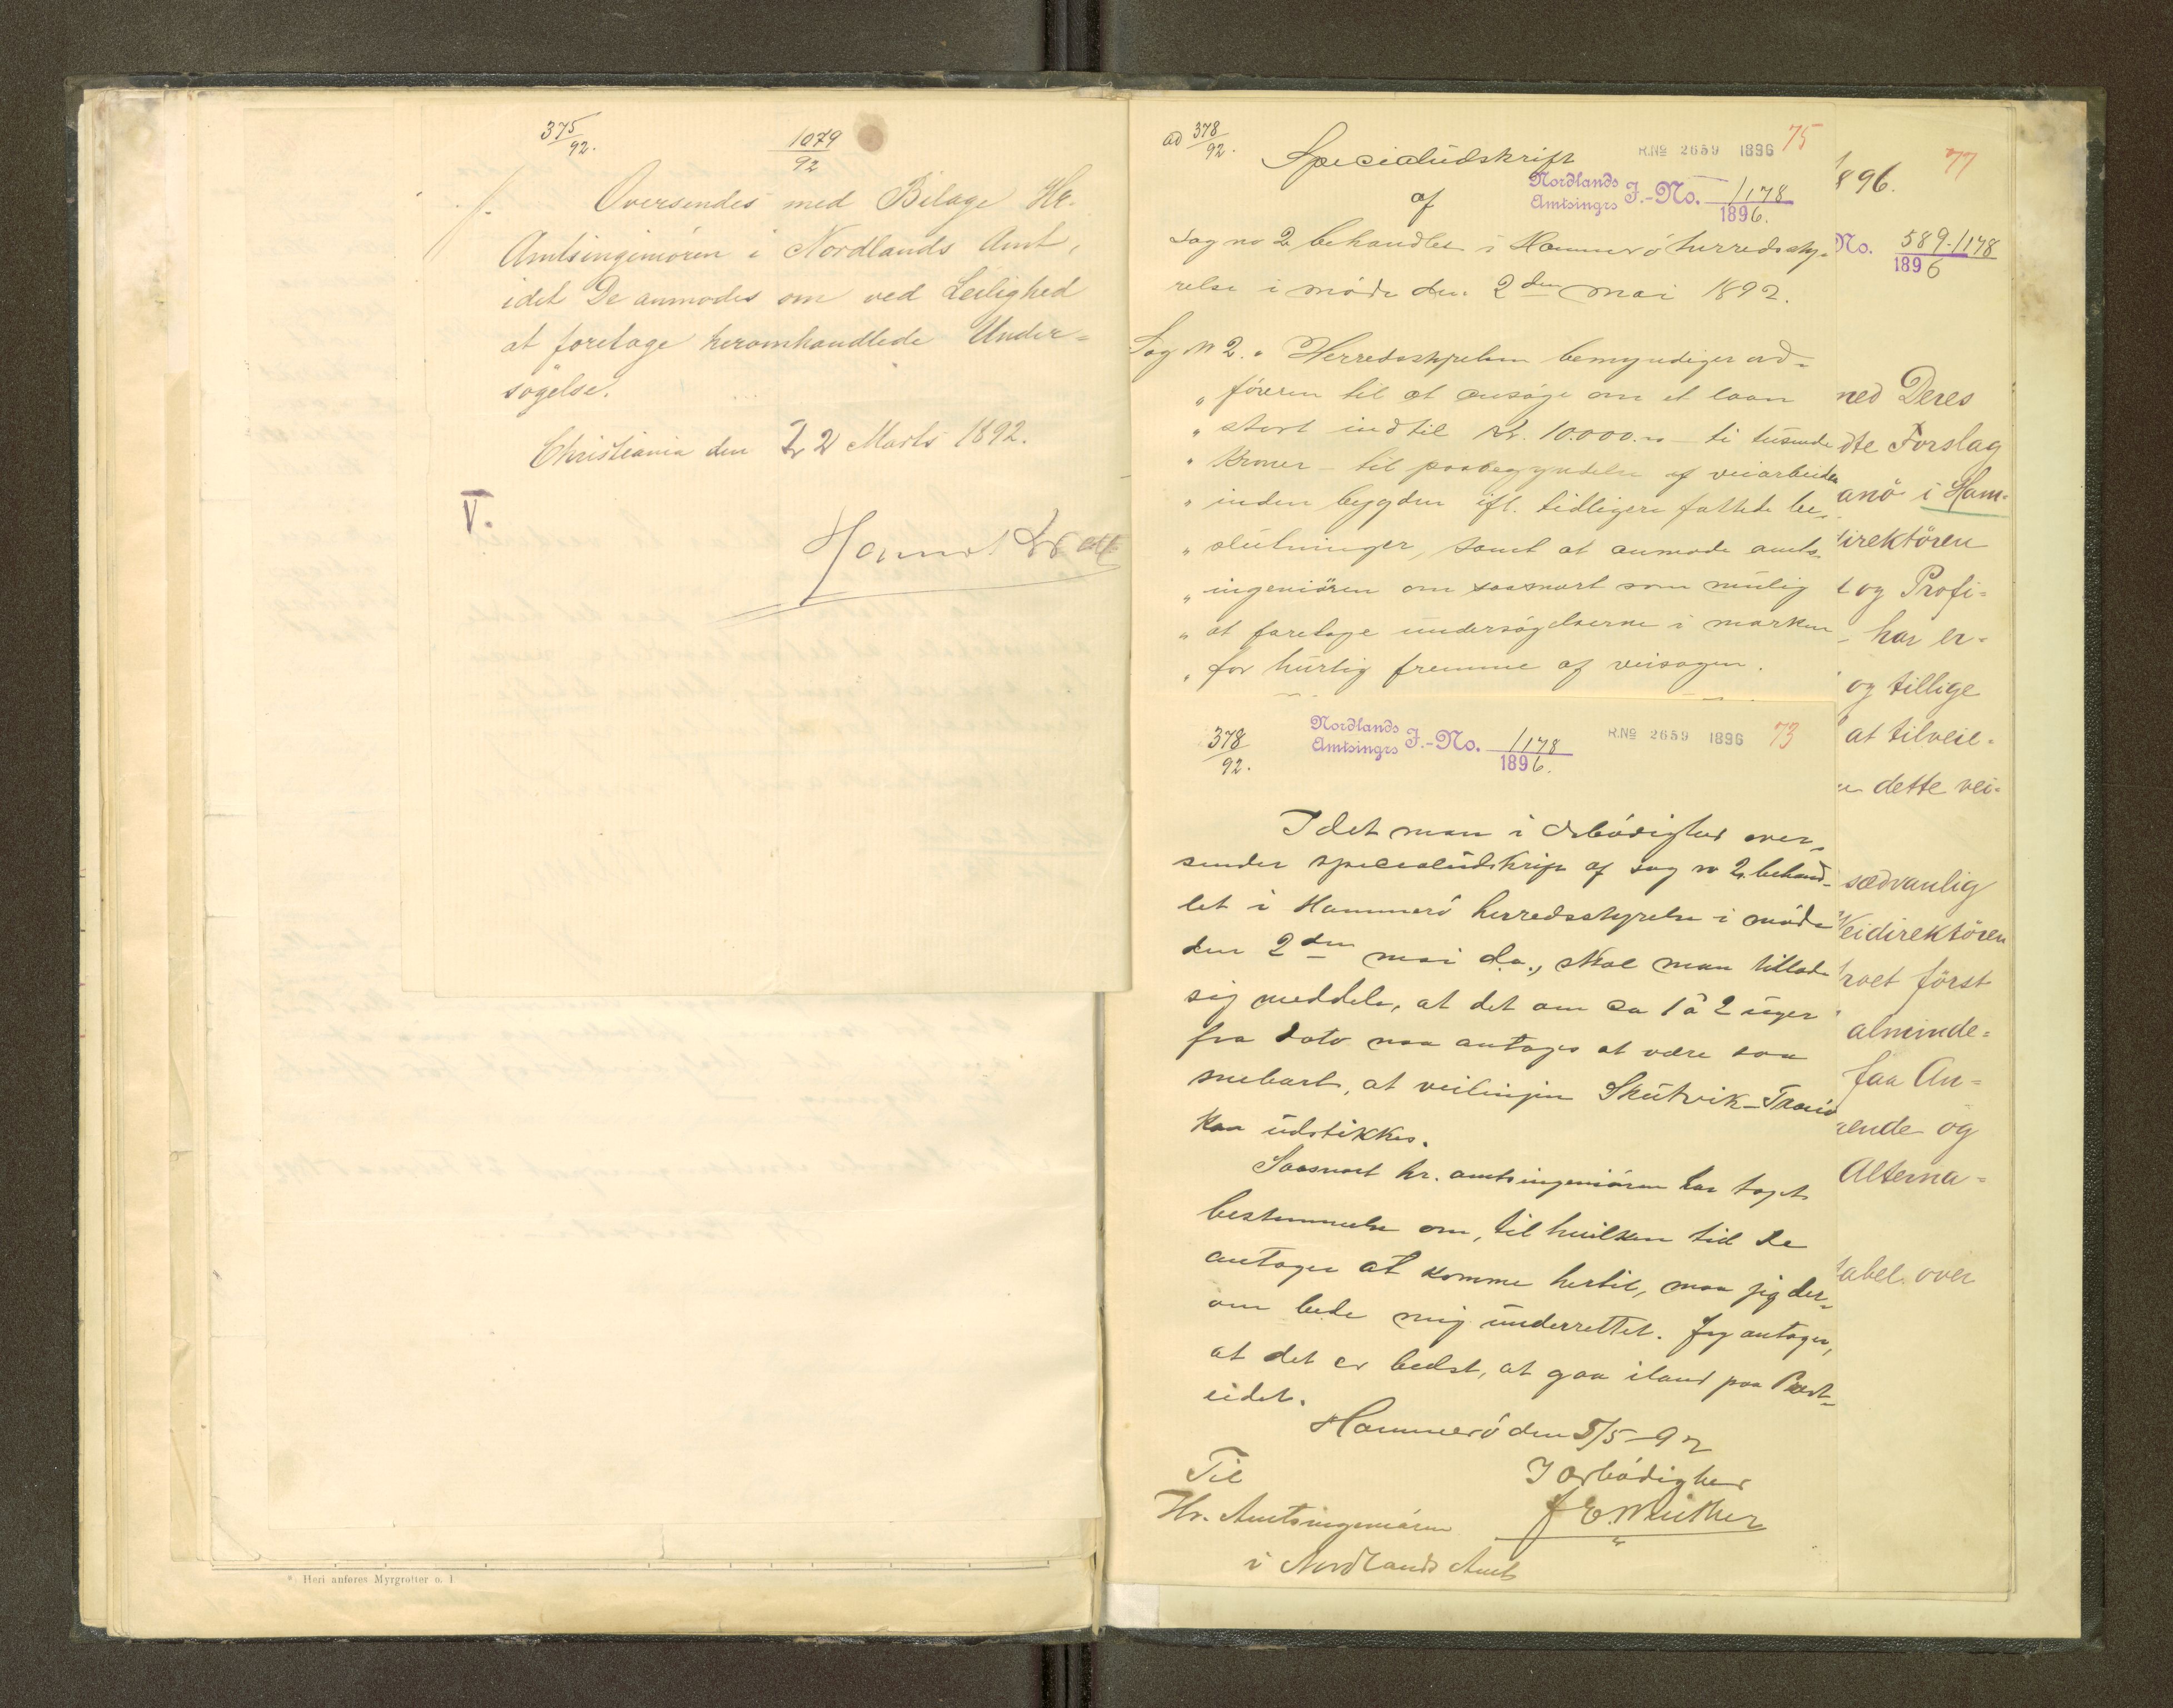 375/92.
1079/92
Oversendes med Bilage Hr.
Amtsingeniören i Nordlands Amt,
idet De anmodes om ved Leilighed
at foretage heromhandlede Under=
sögelse.
Christiania den 22 Marts 1892.
V.
*) Heri anføres Myrgrøfter o. l.
ad 378/92.
Specialudskrift
R.No 2659 1896 75
af
Nordlands Amtsingrs J.-No. 1178/1896.
sag no 2 behandlet i Hammerö herredssty-
relse i möde den 2den mai 1892.
Sag No 2. " Herredsstyrelsen bemyndiger ord-
" föreren til at ansöge om et laan
" stort indtil kr. 10.000.00 – ti tusinde
" Kroner – til paabegyndelse af veiarbeider
" inden bygden ifl. tidligere fattede be-
" slutninger, samt at anmode amts-
" ingeniören om saasnart som mulig
" at foretage undersögelserne i marken
" for hurtig fremme af veisagen.
378/92.
Nordlands Amtsingrs J.-No. 1178/1896.
R.No 2659 1896 73
Idet man i ærbödighed over-
sender specialudskrift af sag no 2 behand-
let i Hammerö herredsstyrelse i möde
den 2den mai d.a., skal man tillade
sig meddele, at det om ca 1 à 2 uger
fra dato maa antages at være saa
snebart, at veilinjen Skutvik-Tranö
kan udstikkes.
Saasnart hr. amtsingeniören har taget
bestemmelse om, til hvilken tid De
antager at komme hertil, maa jeg der-
om bede mig underrettet. Jeg antager,
at det er bedst, at gaa iland paa Prest-
eidet.
Hammerö den 5/5-92
Til
I ærbödighed
Hr. Amtsingeniören
i Nordlands Amt
1896.
77
No. 589.1178/1896
med Deres
dte Forslag
anö i Ham-
direktören
t og Profi=
har er=
og tillige
at tilveie=
dette vei=
sædvanlig
Veidirektören
först
alminde=
faa An=
ende og
Alterna=
tabel over